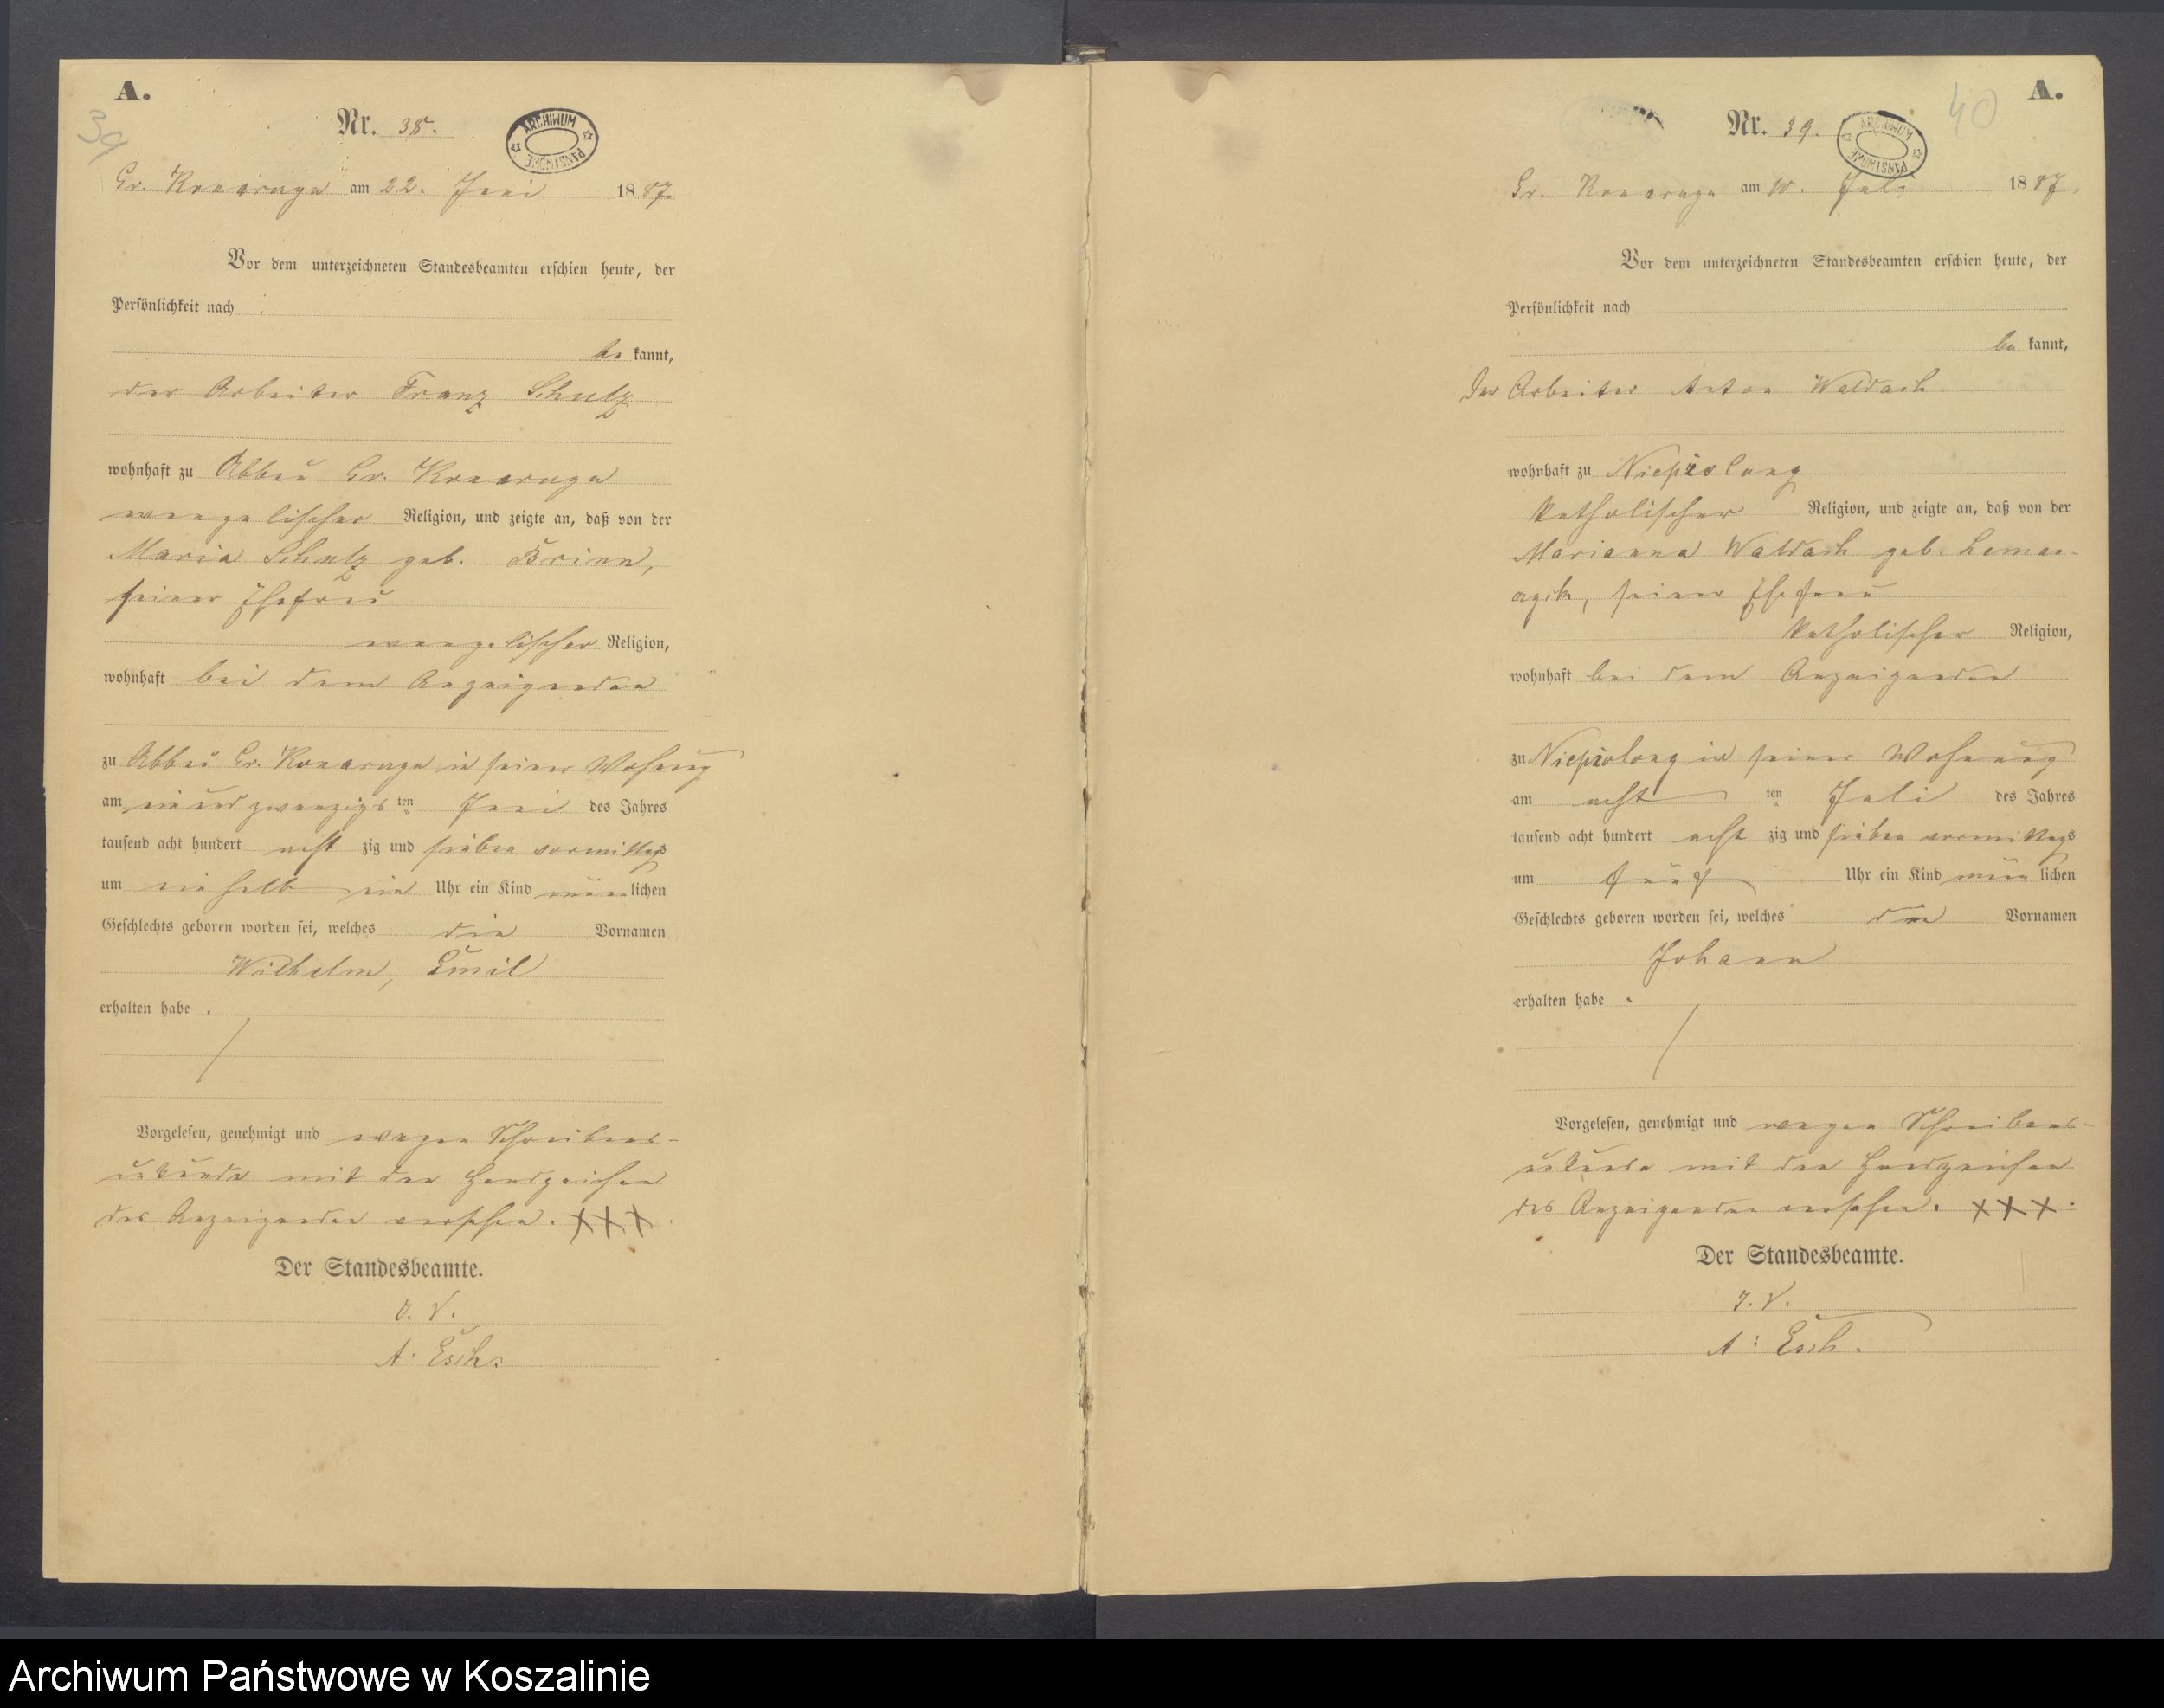 A.
39
Nr. 38.
ARCHIWUM PAŃSTWOWE
Gr. Konarczyn am 22. Juni 1887
Vor dem unterzeichneten Standesbeamten erschien heute, der
Persönlichkeit nach
be kannt,
der Arbeiter Franz Schulz
wohnhaft zu Abbau Gr. Konarczyn
evangelischer Religion, und zeigte an, daß von der
Maria Schulz geb. Brinn,
seiner Ehefrau
evangelischer Religion,
wohnhaft bei dem Anzeigenden
zu Abbau Gr. Konarczyn in seiner Wohnung
am einundzwanzigs ten Juni des Jahres
tausend acht hundert acht zig und sieben vormittags
um ein halb ein Uhr ein Kind männlichen
Geschlechts geboren worden sei, welches die Vornamen
Wilhelm, Emil
erhalten habe.
Vorgelesen, genehmigt und wegen Schreibens-
unkunde mit den Handzeichen
des Anzeigenden versehen. +++
Der Standesbeamte.
J. V.
A. Esch.
A.
40
Nr. 39.
ARCHIWUM PAŃSTWOWE
Gr. Konarczyn am 10. Juli 1887
Vor dem unterzeichneten Standesbeamten erschien heute, der
Persönlichkeit nach
be kannt,
der Arbeiter Anton Waldach
wohnhaft zu
katholischer Religion, und zeigte an, daß von der
Marianna Waldach geb.
seiner Ehefrau
katholischer Religion,
wohnhaft bei dem Anzeigenden
zu in seiner Wohnung
am acht ten Juli des Jahres
tausend acht hundert acht zig und sieben vormittags
um fünf Uhr ein Kind männlichen
Geschlechts geboren worden sei, welches den Vornamen
Johann
erhalten habe.
Vorgelesen, genehmigt und wegen Schreibens-
unkunde mit den Handzeichen
des Anzeigenden versehen. +++.
Der Standesbeamte.
J. V.
A: Esch.
Archiwum Państwowe w Koszalinie